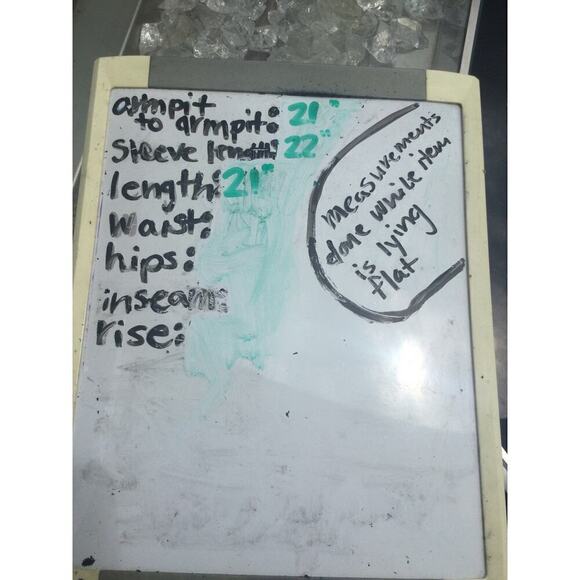 armpit
to armpit: 21"
sleeve length: 22"
length: 21"
waist:
hips:
inseam:
rise:
measurements
done while item
is lying
flat